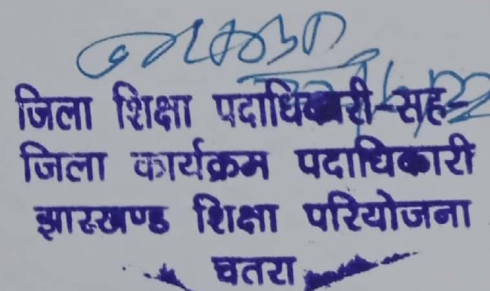 जिला शिक्षा पदाधिकारी-सह-
जिला कार्यक्रम पदाधिकारी
झारखण्ड शिक्षा परियोजना
चतरा